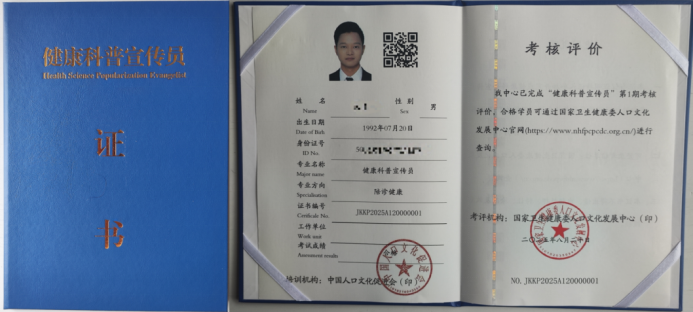 健康科普宣传员
Health Science Popularization Evangelist
证
书
姓 名
Name
性 别
Sex
男
出生日期
Date of Birth
1992年07月20日
身份证号
ID No.
专业名称
Major name
健康科普宣传员
专业方向
Specialisation
陪诊健康
证书编号
Certificate No.
JKKP2025A120000001
工作单位
Work unit
考试成绩
Assessment results
培训机构：中国人口文化促进会（印）
考核评价
我中心已完成“健康科普宣传员”第1期考核
评价，合格学员可通过国家卫生健康委人口文化
发展中心官网(https://www.nhfpcpcdc.org.cn/)进行
查询。
考评机构：国家卫生健康委人口文化发展中心（印）
NO. JKKP2025A120000001